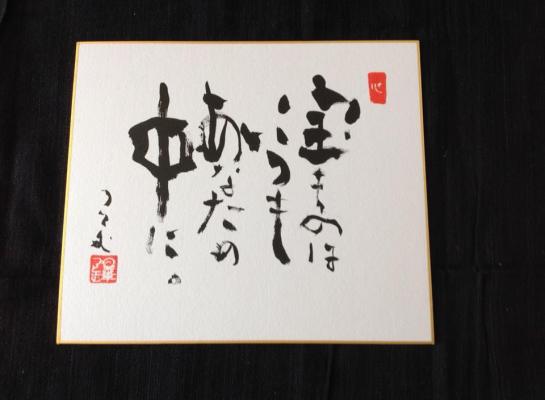 心
宝ものは
いつも
あなたの
中に。
つとむ